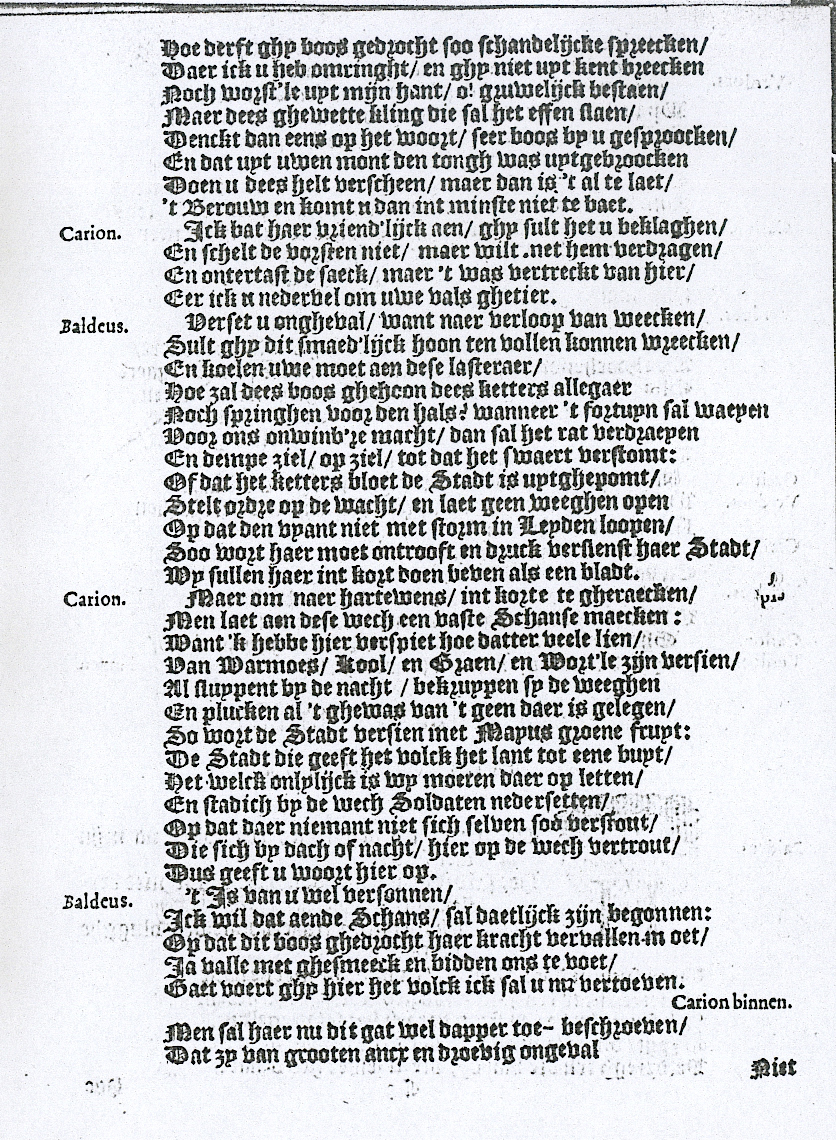 Hoe derft ghy boos gedrocht soo schandelijcke spreecken/
Daer ick u heb omringht/ en ghy niet uyt kent breecken
Noch worst'le uyt mijn hant/ o! gruwelijck bestaen/
Maer dees ghewette kling die sal het effen slaen/
Denckt dan eens op het woort/ seer boos by u gesproocken/
En dat uyt uwen mont den tongh was uytgebroocken
Doen u dees helt verscheen/ maer dan is 't al te laet/
't Berouw en komt u dan int minste niet te baet.
Carion. Ick bat haer vriend'lijck aen/ ghy sult het u beklaghen/
En schelt de vorsten niet/ maer wilt .net hem verdragen/
En ontertast de saeck/ maer 't was vertreckt van hier/
Eer ick u nedervel om uwe vals ghetier.
Baldeus. Verset u ongheval/ want naer verloop van weecken/
Sult ghy dit smaed'lijck hoon ten vollen konnen wreecken/
En koelen uwe moet aen dese lasteraer/
Hoe zal dees boos ghehcon dees ketters allegaer
Noch springhen voor den hals? wanneer 't fortuyn sal waeyen
Voor ons onwinb're macht/ dan sal het rat verdraeyen
En dempe ziel/ op ziel/ tot dat het swaert verstomt:
Of dat het ketters bloet de Stadt is uytghepomt/
Stelt ordre op de wacht/ en laet geen weeghen open
Op dat den vyant niet met storm in Leyden loopen/
Soo wort haer moet ontrooft en druck verslenst haer Stadt/
Wy sullen haer int kort doen beven als een bladt.
Carion. Maer om naer hartewens/ int korte te gheraecken/
Men laet aen dese wech een vaste Schanse maecken:
Want 'k hebbe hier verspiet hoe datter veele lien/
Van Warmoes/ Kool/ en Graen/ en Wort'le zijn versien/
Al sluppent by de nacht / bekruppen sy de weeghen
En plucken al 't ghewas van 't geen daer is gelegen/
So wort de Stadt versien met Mayus groene fruyt:
De Stadt die geeft het volck het lant tot eene buyt/
Het welck onlylijck is wy moeten daer op letten/
En stadich by de wech Soldaten nedersetten/
Op dat daer niemant niet sich selven soo verstout/
Die sich by dach of nacht/ hier op de wech vertrout/
Dus geeft u woort hier op.
Baldeus. 't Is van u wel versonnen/
Ick wil dat aende Schans/ sal daetlijck zijn begonnen:
Op dat dit boos ghedrocht haer kracht vervallen m oet/
Ja valle met ghesmeeck en bidden ons te voet/
Gaet voert ghy hier het volck ick sal u nu vertoeven.
Carion binnen.
Men sal haer nu dit gat wel dapper toe- beschroeven/
Dat zy van grooten ancx en droevig ongeval
Niet